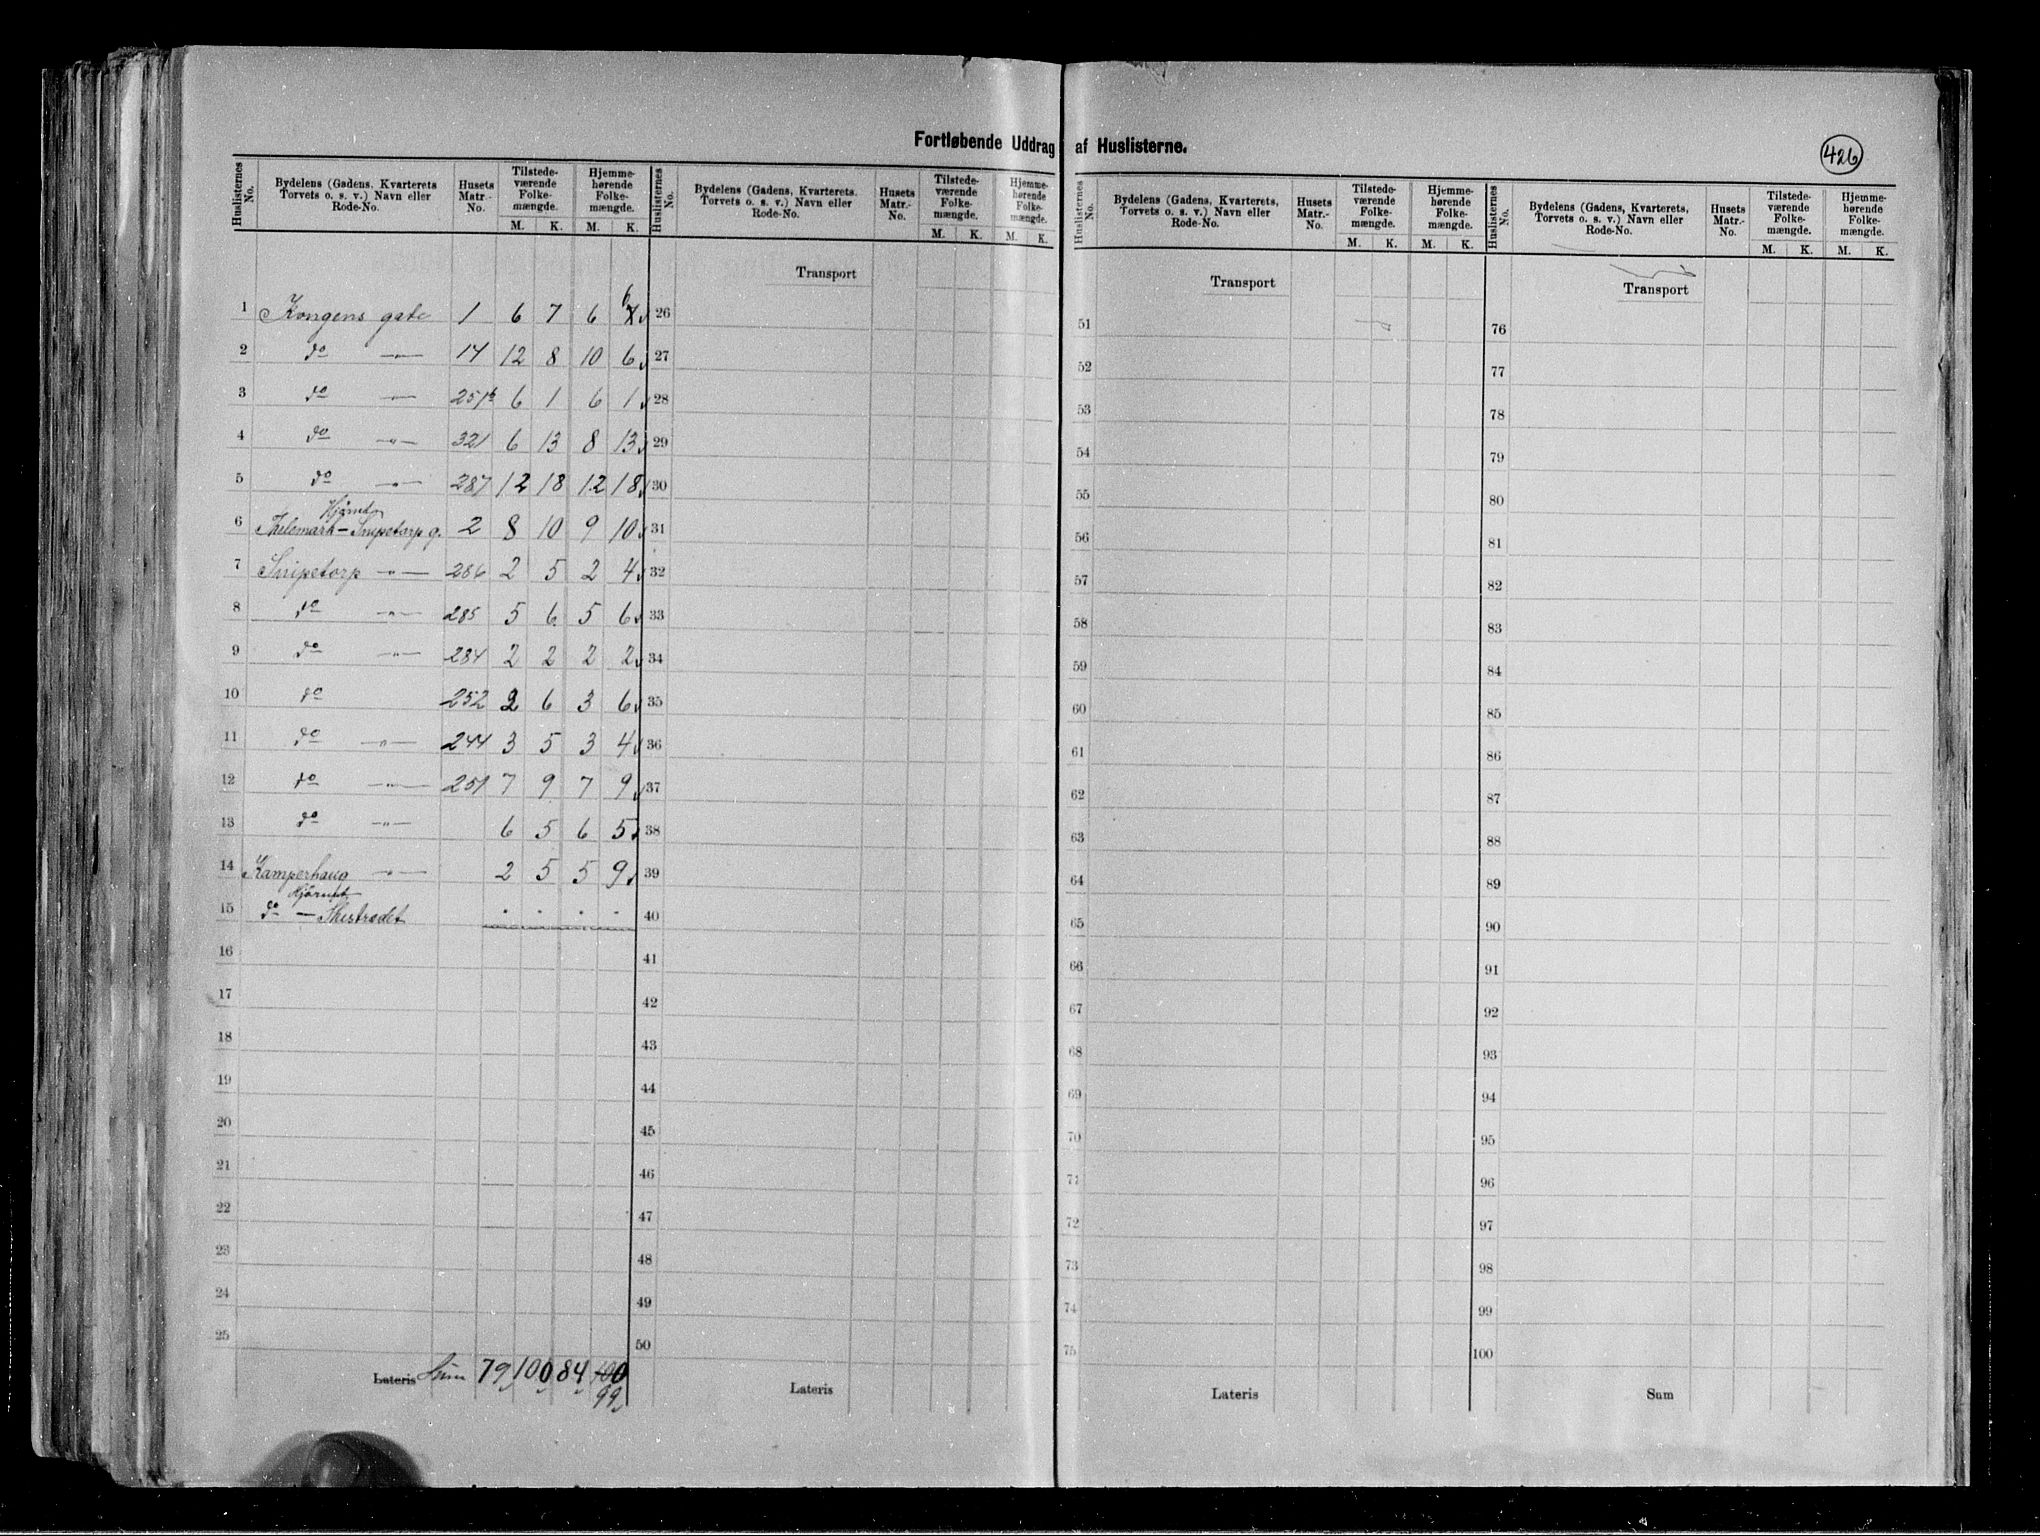 Fortløbende Uddrag af Huslisterne.
426
Huslisternes No. | Bydelens (Gadens, Kvarterets Torvets o. s. v.) Navn eller Rode-No. | Husets Matr.-No. | Tilstedeværende Folkemængde. M. K. | Hjemmehørende Folkemængde. M. K.
1 Kongens gate 1 6 7 6 7 6
2 do —"— 14 12 8 10 6
3 do —"— 251b 6 1 6 1
4 do —"— 321 6 13 8 13
5 do —"— 287 12 18 12 18
Hjørnet
6 Thelemark - Snipetorp g. 2 8 10 9 10
7 Snipetorp —"— 286 2 5 2 4
8 do —"— 285 5 6 5 6
9 do —"— 284 2 2 2 2
10 do 252 2 6 3 6
11 do —"— 244 3 5 3 4
12 do —"— 251 7 9 7 9
13 do —"— 6 5 6 5
14 Kamperhaug —"— 2 5 5 9
Hjørnet
15 do — . . . .
16
17
18
19
20
21
22
23
24
25
Lateris Sum 79 100 84 100
99
Huslisternes No. | Bydelens (Gadens, Kvarterets, Torvets o. s. v.) Navn eller Rode-No. | Husets Matr.-No. | Tilstedeværende Folkemængde. M. K. | Hjemmehørende Folkemængde. M. K.
Transport
26
27
28
29
30
31
32
33
34
35
36
37
38
39
40
41
42
43
44
45
46
47
48
49
50
Lateris
Huslisternes No. | Bydelens (Gadens, Kvarterets, Torvets o. s. v.) Navn eller Rode-No. | Husets Matr.-No. | Tilstedeværende Folkemængde. M. K. | Hjemmehørende Folkemængde. M. K.
Transport
51
52
53
54
55
56
57
58
59
60
61
62
63
64
65
66
67
68
69
70
71
72
73
74
75
Lateris
Huslisternes No. | Bydelens (Gadens, Kvarterets, Torvets o. s. v.) Navn eller Rode-No. | Husets Matr.-No. | Tilstedeværende Folkemængde. M. K. | Hjemmehørende Folkemængde. M. K.
Transport
76
77
78
79
80
81
82
83
84
85
86
87
88
89
90
91
92
93
94
95
96
97
98
99
100
Sum